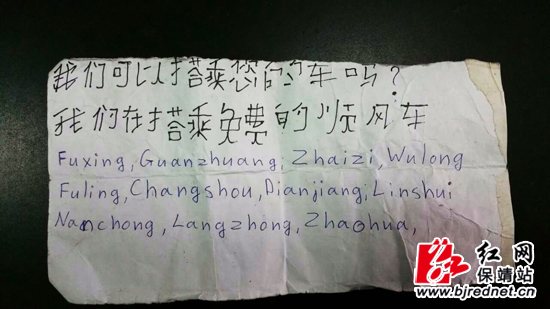 我们可以搭乘您的车吗？
我们在搭乘免费的顺风车
Fuxing, Guanzhuang, Zhaizi, Wulong
Fuling, Changshou, Dianjiang, Linshui
Nanchong, Langzhong, Zhaohua,
红网
保靖站
www.bjrednet.cn